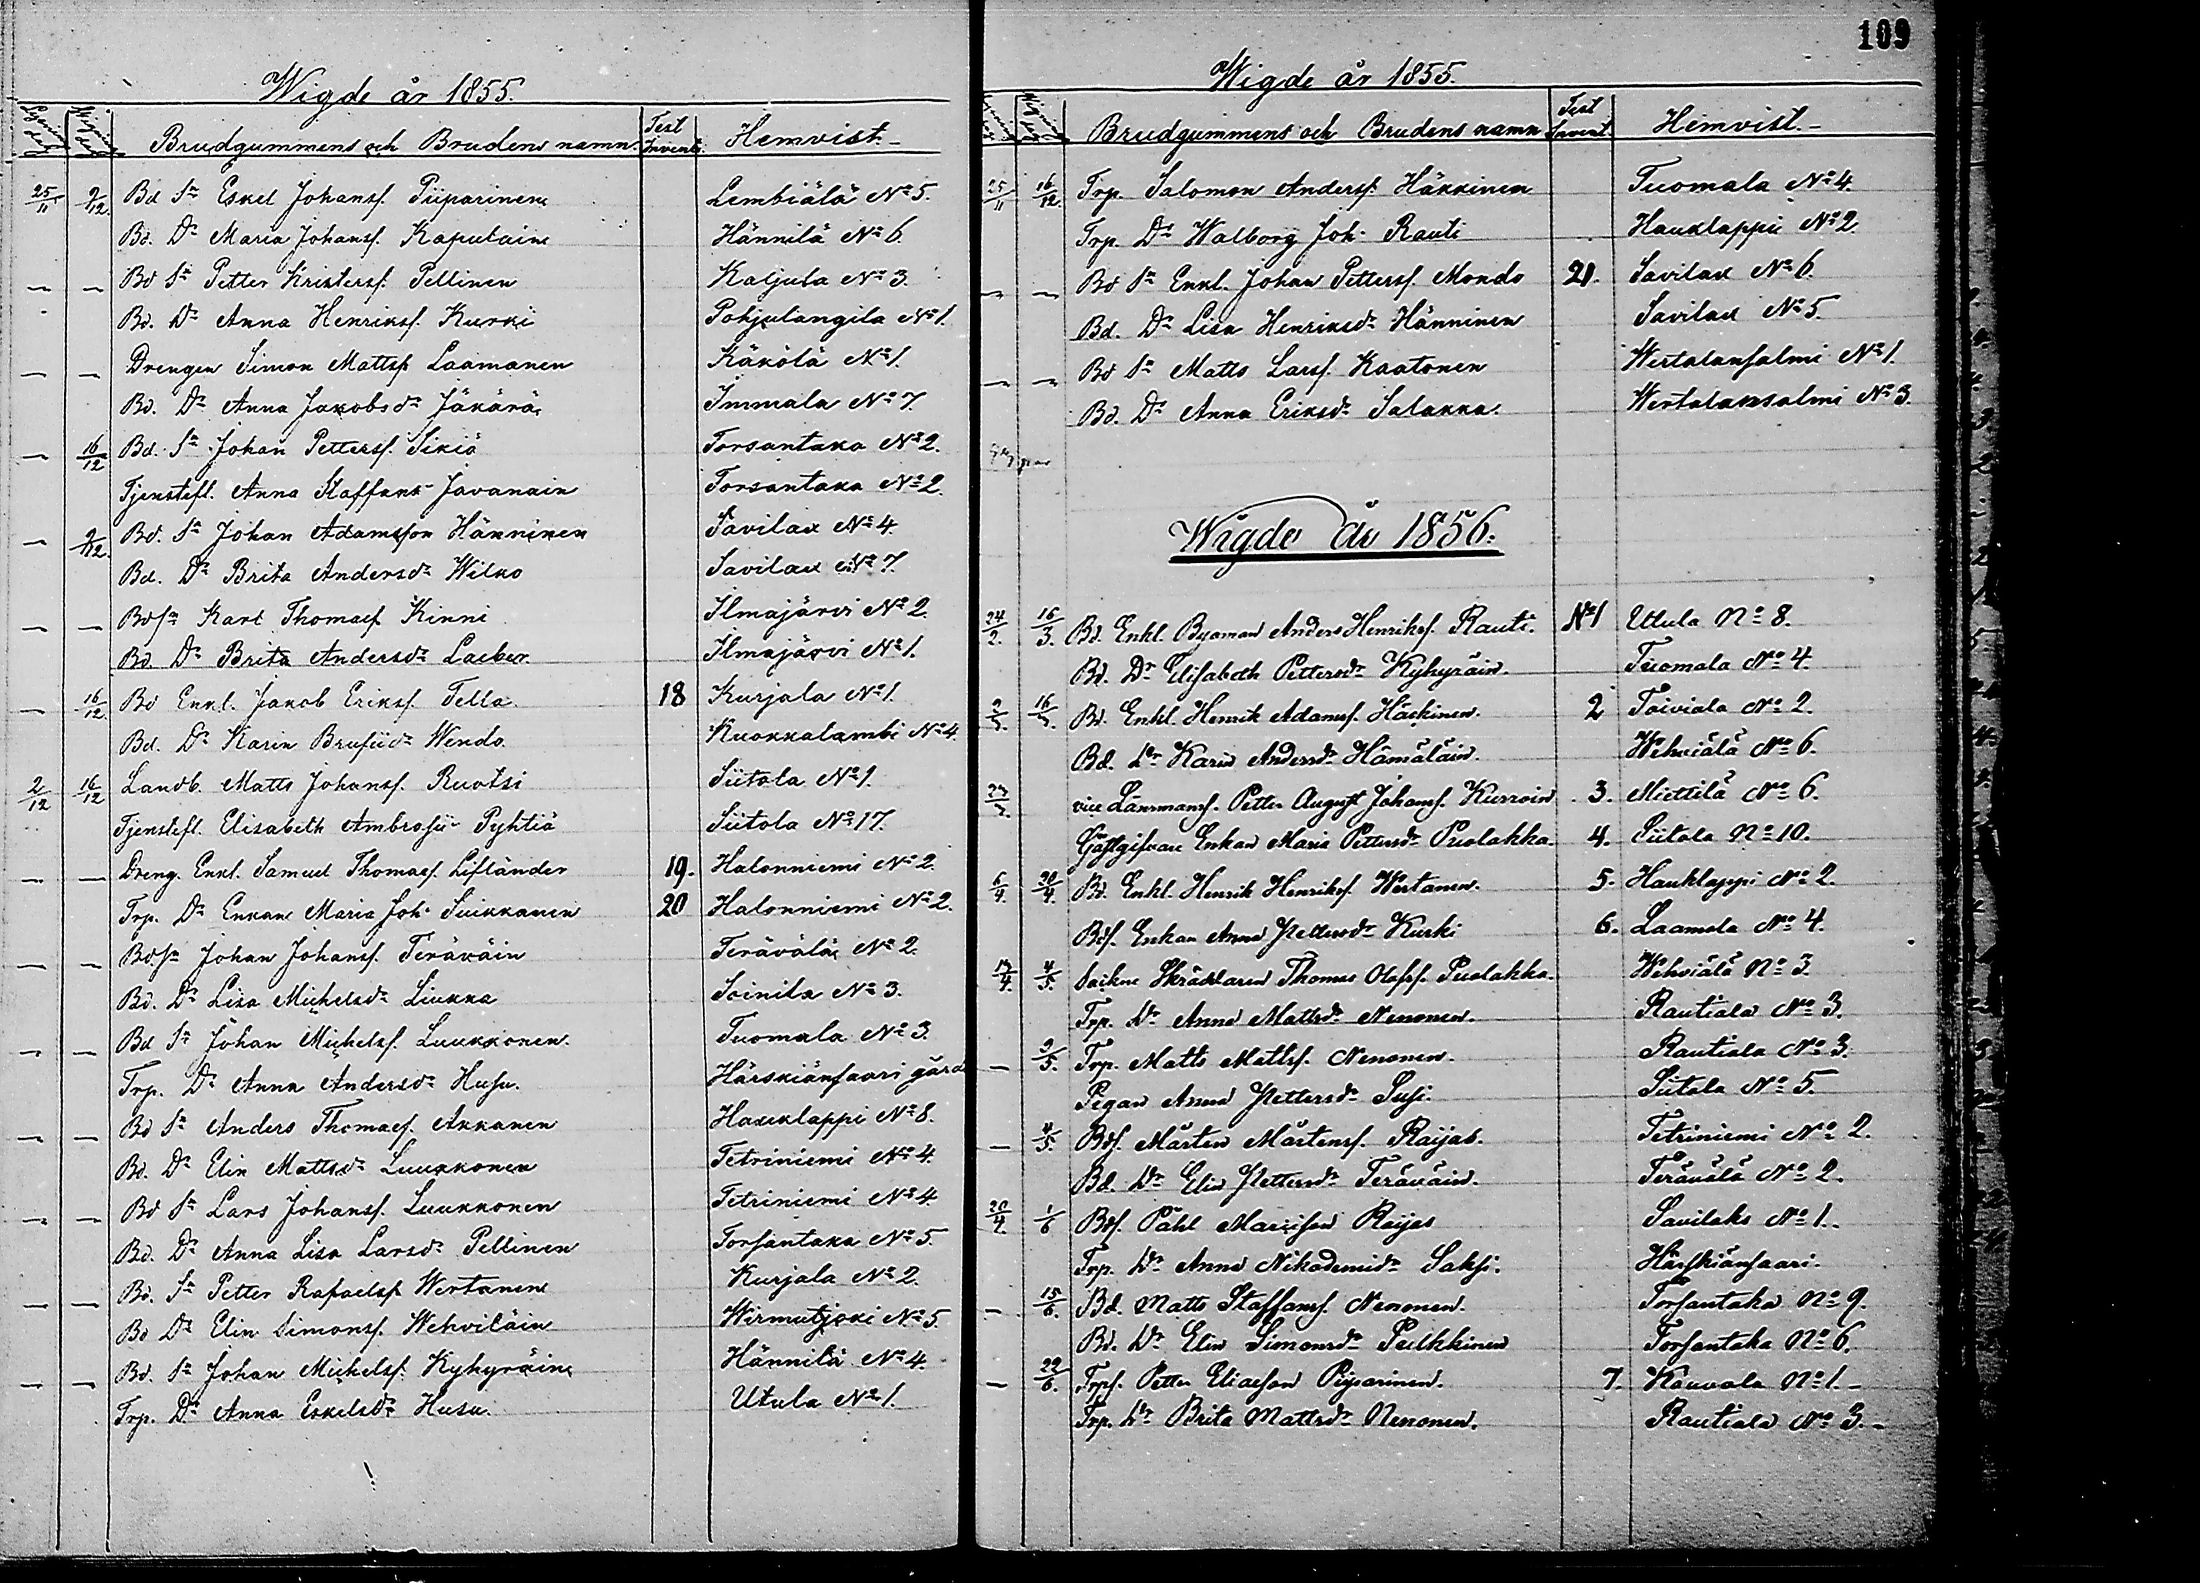 109
Wigde år 1855.
Lysnings dag Vignings dag Brudgummens och Brudens namn. Test Invent. Hemvist.-
25/11 9/12. Bd Sn Eskel Johansf. Piiparinen Lembiälä No 5.
Bd. Dr Maria Johansf. Kaputain Hännilä No 6.
— — Bd Sn Petter Kristersf. Pellinen Kaljula No 3.
Bd. Dr Anna Henriksf. Kurki Pohjalangila No 1.
— — Drengen Simon Mattsf. Laamanen Käkölä No 1.
Bd. Dr Anna Jakobsdr Jäkärä Immala No 7.
— 16/12 Bd. Sn Johan Pettersf. Sikiö Torsantaka No 2.
Tjenstefl. Anna Staffans Javanain Torsantaka No 2.
— 9/12. Bd. Sn Johan Adamsson Hänninen Savilax No 4.
Bd. Dr Brita Andersdr Wilko Savilax No 7.
— — Bdsn Karl Thomasf Kinni Ilmajärvi No 2.
Bd. Dr Brita Andersdr Laeber. Ilmajärvi No 1.
— 16/12 Bd Enkl. Jakob Eriksf. Tella 18 Kurjala No 1.
Bd. Dr Karin Brusiidr Wendo. Kuokkalambi No 4.
2/12 16/12 Landb. Matts Johansf. Ruotsi Siitola No 1.
Tjenstefl. Elisabeth Ambrosii Pyhtiä Siitola No 17.
— — Dreng. Enkl. Samuel Thomasf. Lifländer 19. Halonniemi No 2.
Trp. Dr Enkan Maria Joh. Suikkanen 20 Halonniemi No 2.
— — Bdsn Johan Johansf. Teräväin Terävälä No 2.
Bd. Dr Lisa Michelsdr Liukka Soinila No 3.
— — Bd Sn Johan Michelsf. Luukkonen. Tuomala No 3.
Trp. Dr Anna Andersdr Husu. Härskiänsaari gård
— — Bd Sn Anders Thomasf. Akkanen Hauklappi No 8.
Bd. Dr Elin Mattsdr Luukkonen Tetriniemi No 4.
— — Bd Sn Lars Johansf. Luukkonen Tetriniemi No 4.
Bd. Dr Anna Lisa Larsdr Pellinen Torsantaka No 5.
— — Bd. Sn Petter Rafaelsf Wertanen Kurjala No 2.
Bd Dr Elin Simonsf. Wehviläin Wirmutjoki No 5.
— — Bd. Sn Johan Michelsf. Kyhyräin Hännilä No 4.
Trp. Dr Anna Eskelsdr Husu. Utula No 1.
Wigde år 1855.
Brudgummens och Brudens namn Test Invent. Hemvist.-
25/11 16/12. Trp. Salomon Andersf. Häkkinen Tuomala No 4.
Trp. Dr Walborg Joh. Rauti Hauklappi No 2.
— — Bd Sn Enkl. Johan Pettersf. Mondo 21. Savilax No 6.
Bd. Dr Lisa Henriksdr Hänninen Savilax No 5.
— — Bd Sn Matts Larsf. Kaatonen Wertalansalmi No 1.
Bd. Dr Anna Eriksdr Salakka. Wertalansalmi No 3.
Wigde år 1856.
24/2. 16/3. Bd. Enkl. Byaman Anders Henriksf. Rauti. No 1 Utula No 8.
Bd. Dr Elisabeth Pettersdr Kyhyräin. Tuomala No 4.
2/3. 16/3. Bd. Enkl. Henrik Adamsf. Häckinen. 2 Toiviala No 2.
Bd. Dr Karin Andersdr Hämäläin. Wehviälä No 6.
23/3. vice Länsmansf. Petter August Johansf. Kurroin 3. Miettilä No 6.
Gästgifvare Enkan Maria Pettersdr Puolakka. 4. Siitola No 10.
6/4. 20/4. Bd. Enkl. Henrik Henriksf. Wertanen. 5. Hauklappi No 2.
Bdf. Enkan Anna Pettersdr Kurki 6. Laamala No 4.
13/4. 4/5. Sockne Skräddaren Thomas Olofsf. Puolakka. Wehviälä No 3.
Trp. Dr Anna Mattsdr Nenonen. Rautiala No 3.
— 9/5. Trp. Matts Mattsf. Nenonen. Rautiala No 3.
Pigan Anna Pettersdr Susi. Siitola No 5.
— 4/5. Bdf. Mårten Mårtensf. Raijas. Tetriniemi No 2.
Bd. Dr Elin Pettersdr Teräväin. Terävälä No 2.
20/4. 1/6 Bdf. Påhl Raijas Savilaks No 1.
Trp. Dr Anna Nikodemidr Saksi. Härskiänsaari.
— 15/6. Bd. Matts Staffansf. Nenonen. Torsantaka No 9.
Bd. Dr Elin Simonsdr Pulkkinen Torsantaka No 6.
— 22/6. Trpf. Petter Eliaeson Piiparinen. 7. Kauvala No 1.-
Trp. Dr Brita Mattsdr Nenonen. Rautiala No 3.-